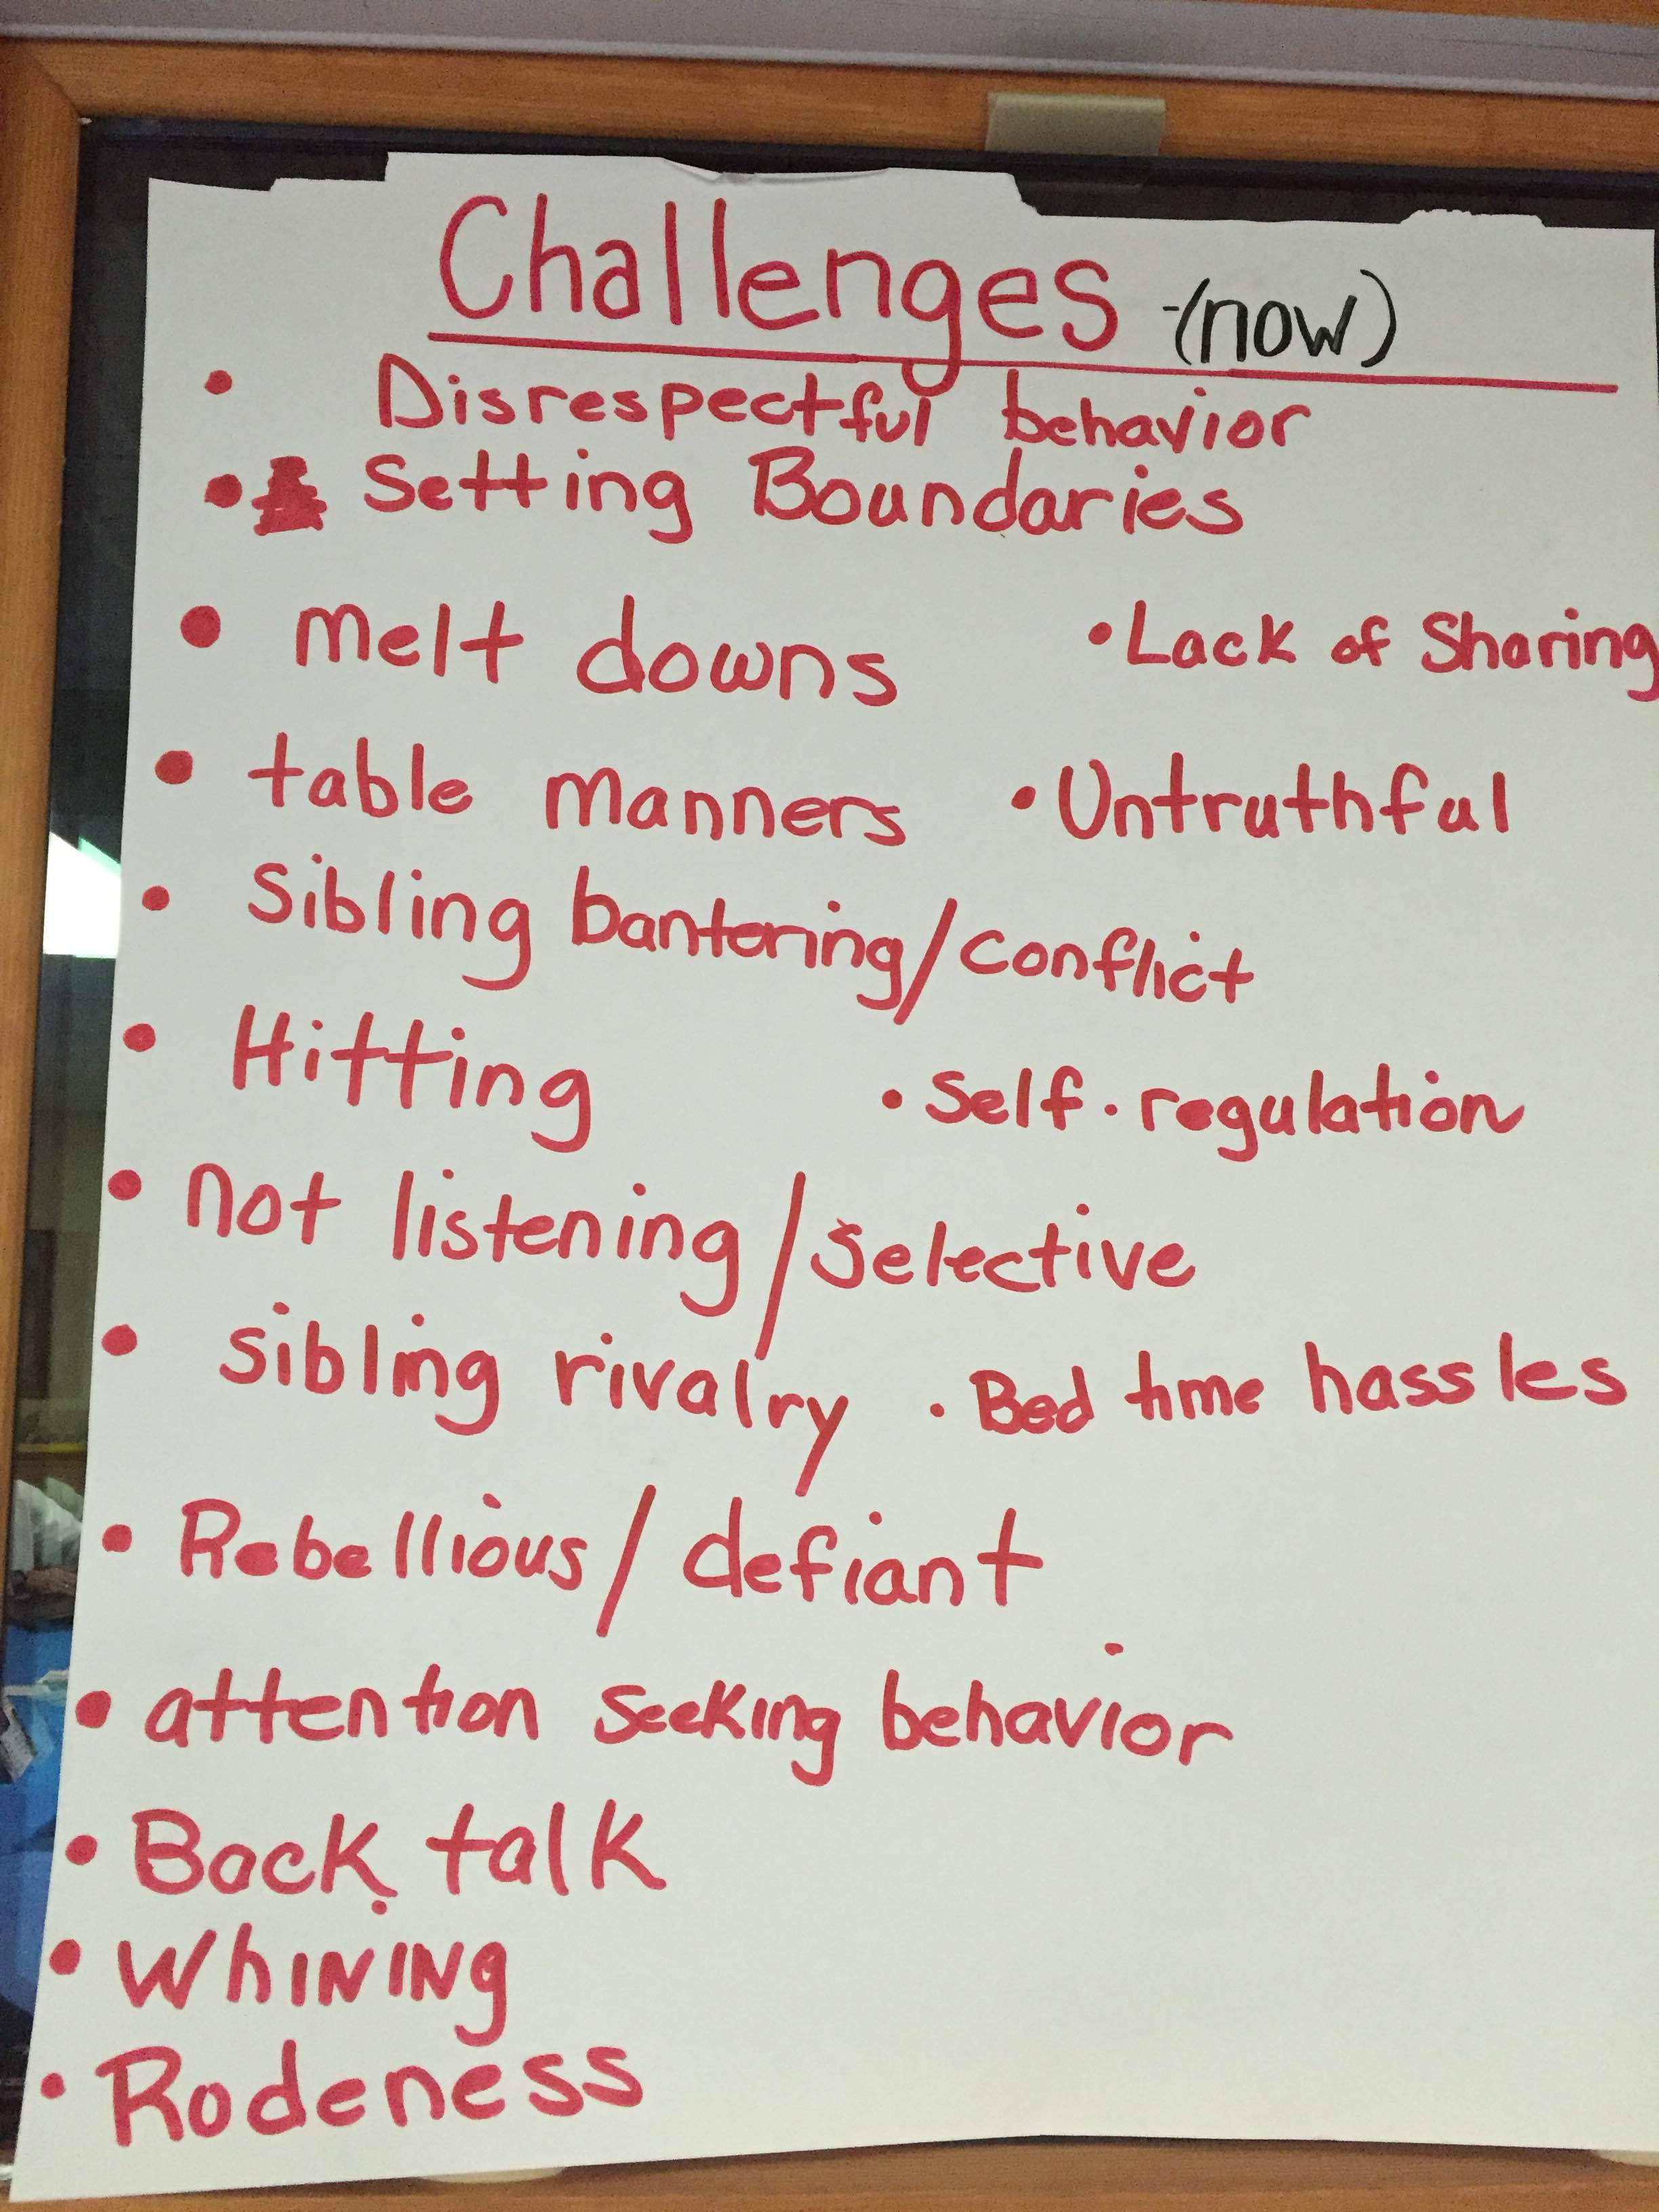 Challenges -(now)
• Disrespectful behavior
• Setting Boundaries
• melt downs • Lack of Sharing
• table manners • Untruthful
• Sibling bantering/conflict
• Hitting • Self-regulation
• not listening/selective
• sibling rivalry • Bed time hassles
• Rebellious/defiant
• attention seeking behavior
• Back talk
• Whining
• Rodeness